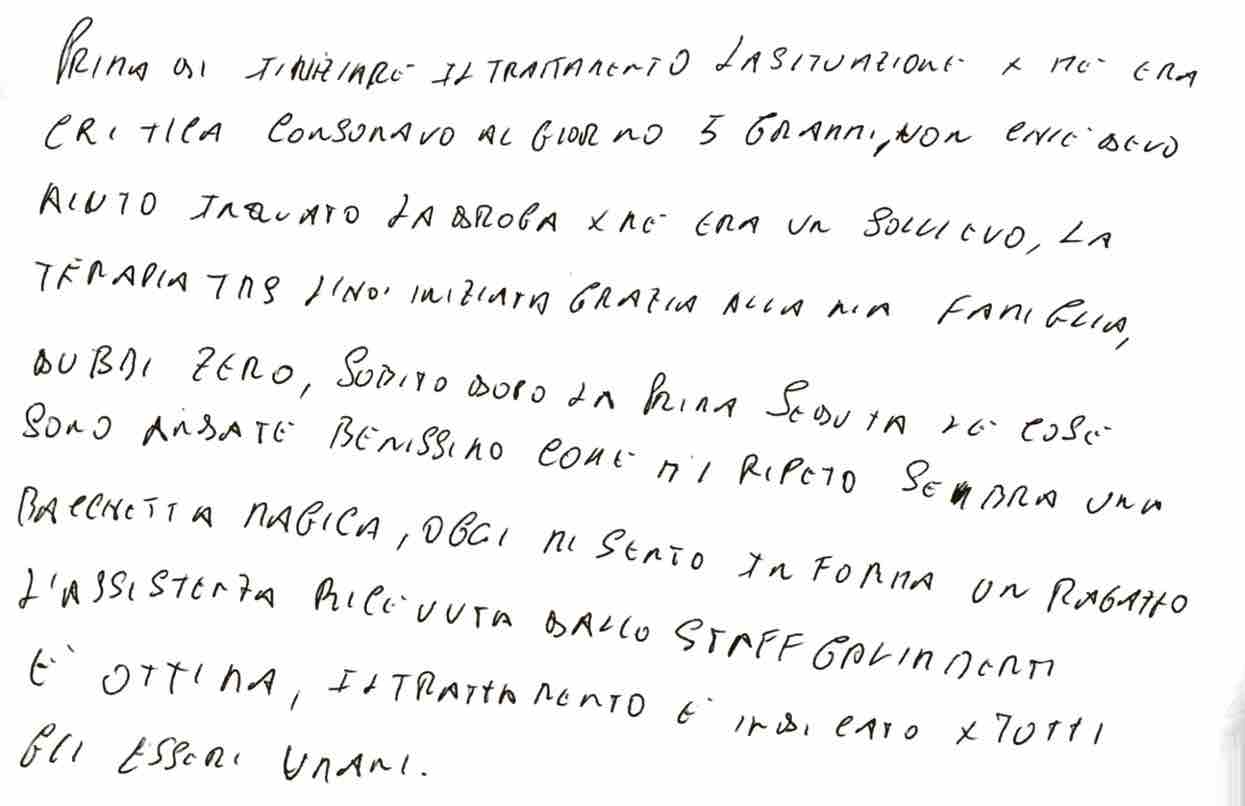 PRIMA DI INIZIARE IL TRATTAMENTO LA SITUAZIONE X ME ERA
CRITICA CONSUMAVO AL GIORNO 5 GRAMMI, NON CHIEDEVO
AIUTO INQUATO LA DROGA X ME ERA UN SOLLIEVO, LA
TERAPIA TMS L'HO INIZIATA GRAZIA ALLA MIA FAMIGLIA,
DUBBI ZERO, SUBITO DOPO LA PRIMA SEDUTA LE COSE
SONO ANDATE BENISSIMO COME MI RIPETO SEMBRA UNA
BACCHETTA MAGICA, OGGI MI SENTO IN FORMA UN RAGAZZO
L'ASSISTENZA RICEVUTA DALLO STAFF
E' OTTIMA, IL TRATTAMENTO E' INDICATO X TUTTI
GLI ESSERI UMANI.